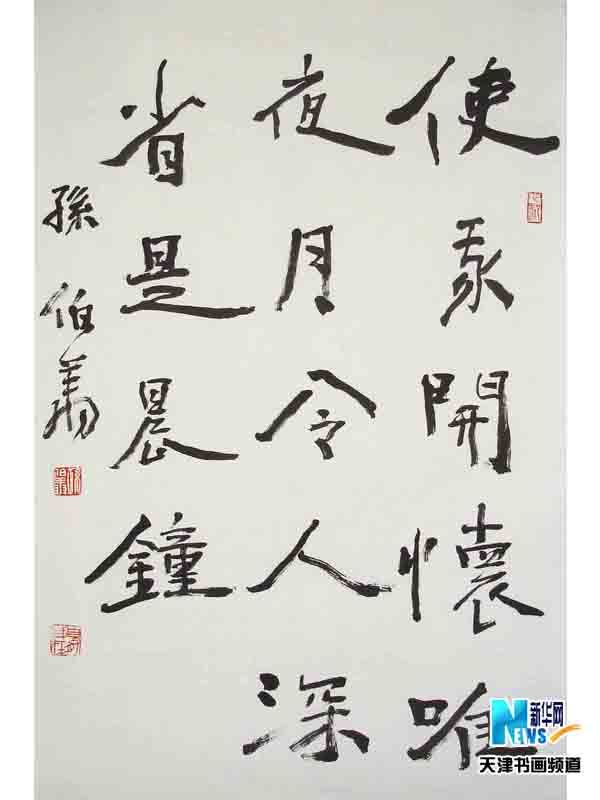 使我開懷唯
夜月令人深
省是晨鐘
孫伯翔
新华网
NEWS
天津书画频道